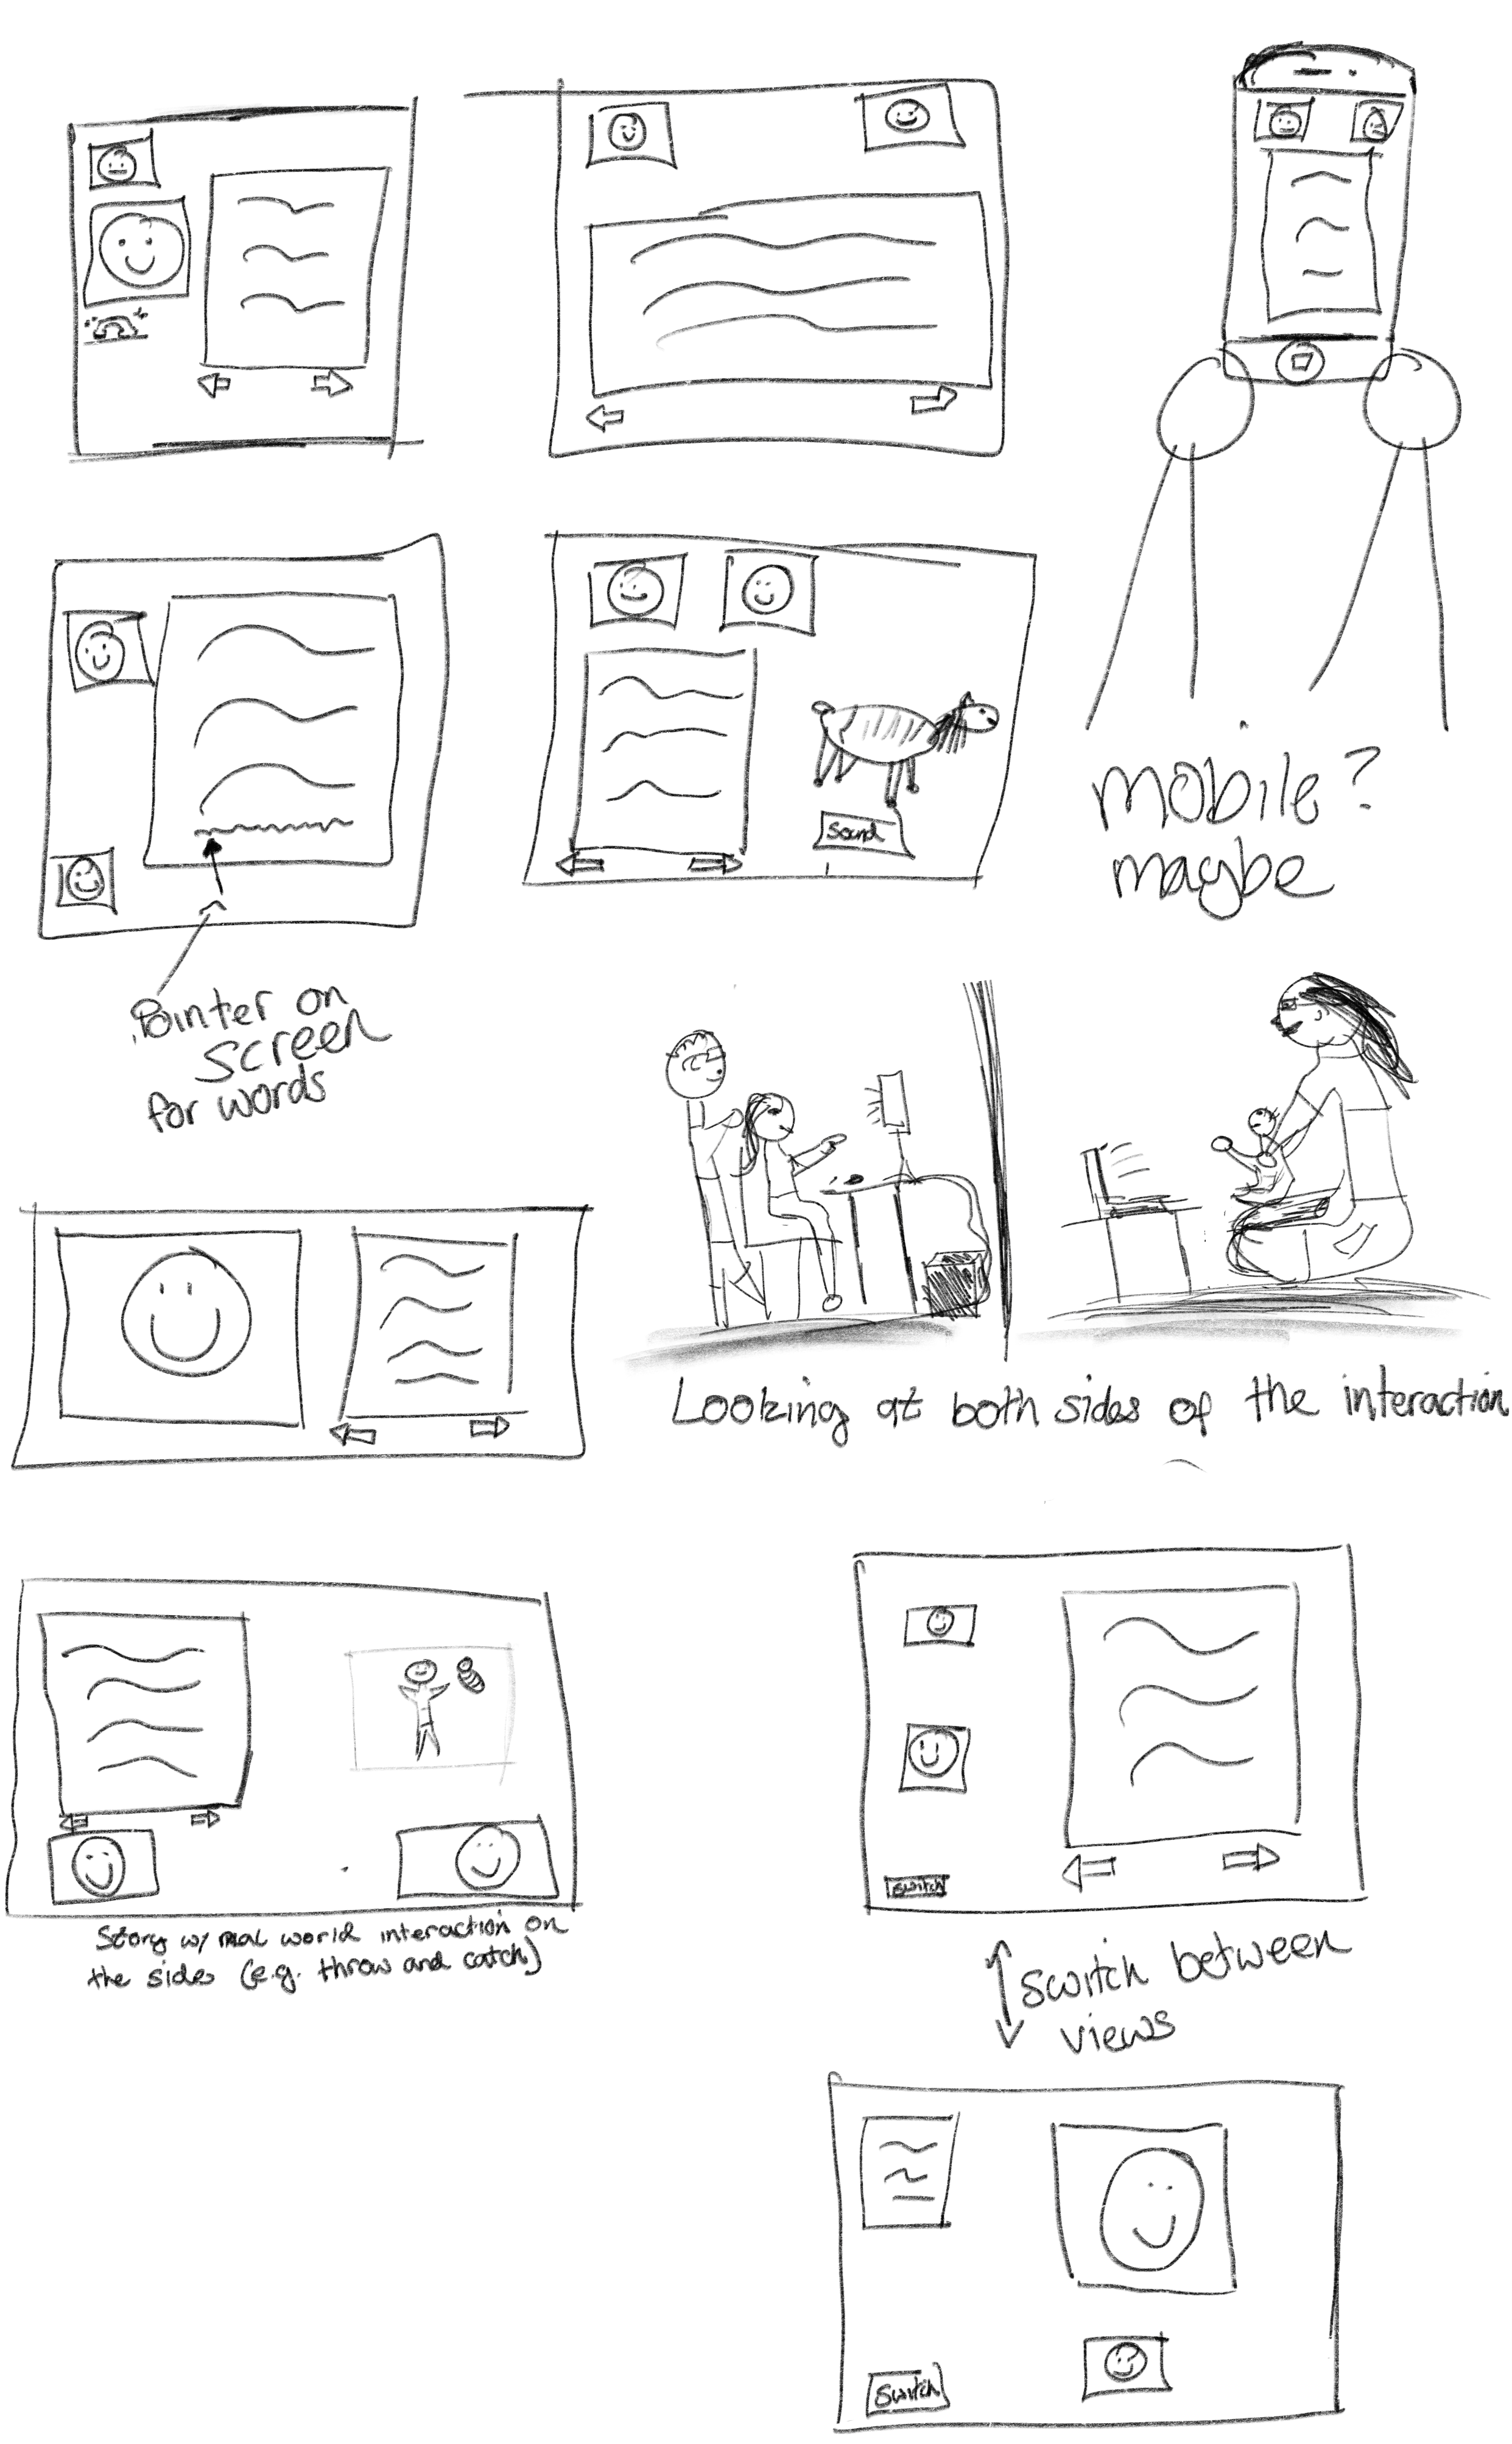 mobile?
maybe
Sound
Pointer on
screen
for words
Looking at both sides of the interaction
Story w/ real world interaction on
the sides (e.g. throw and catch)
switch
switch between
views
Switch